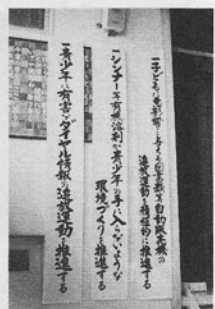 一子どもに悪影響を与える図書類等自動販売機の
追放運動を積極的に推進する
一シンナー等有機溶剤が青少年の手に入らないような
環境づくりを推進する
一青少年に有害なダイヤル情報の追放運動を推進する